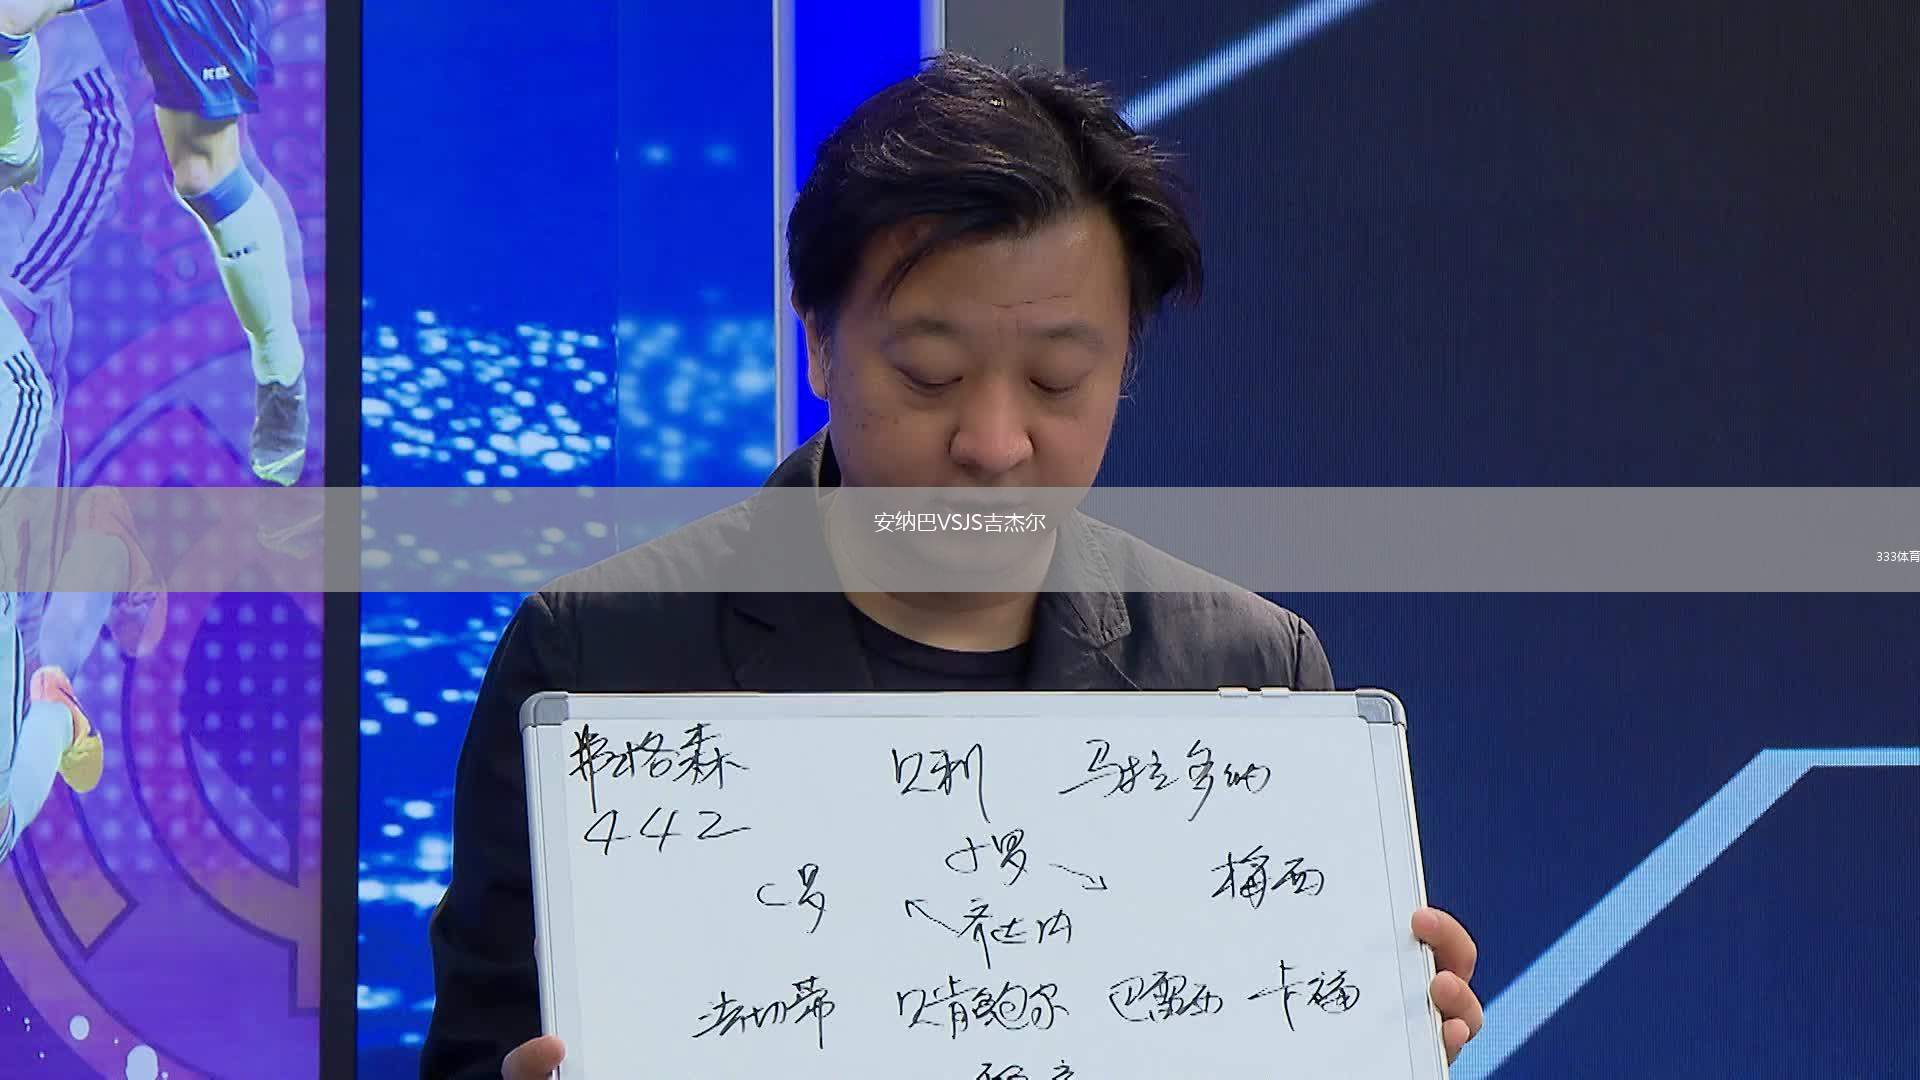 安纳巴VSJS吉杰尔
333体育
弗格森 贝利 马拉多纳
442
小罗
C罗 梅西
齐达内
法切蒂 贝肯鲍尔 巴雷西 卡福